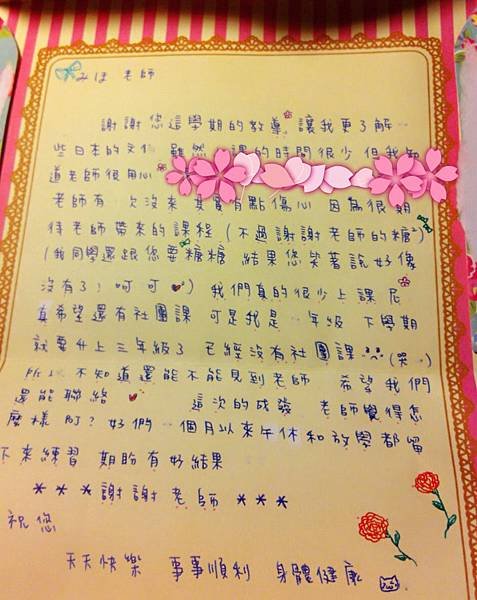 みほ 老師
謝謝您這學期的教導 讓我更了解
些日本的文化 雖然 課的時間很少 但我知
道老師很用心
老師有 次沒來 其實有點傷心 因為很期
待老師帶來的課程 (不過謝謝老師的糖
(我同學還跟您要糖糖 結果您笑著說好像
沒有了! 呵可 ) 我們真的很少上課尼
真希望還有社團課 可是我是 年級 下學期
就要升上三年級了 已經沒有社團課 (哭
所以 不知道還能不能見到老師 希望我們
還能聯絡 這次的成發 老師覺得怎
麼樣 阿? 好們 個月以來午休和放學都留
下來練習 期盼有好結果
***謝謝老師***
祝您
天天快樂 事事順利 身體健康